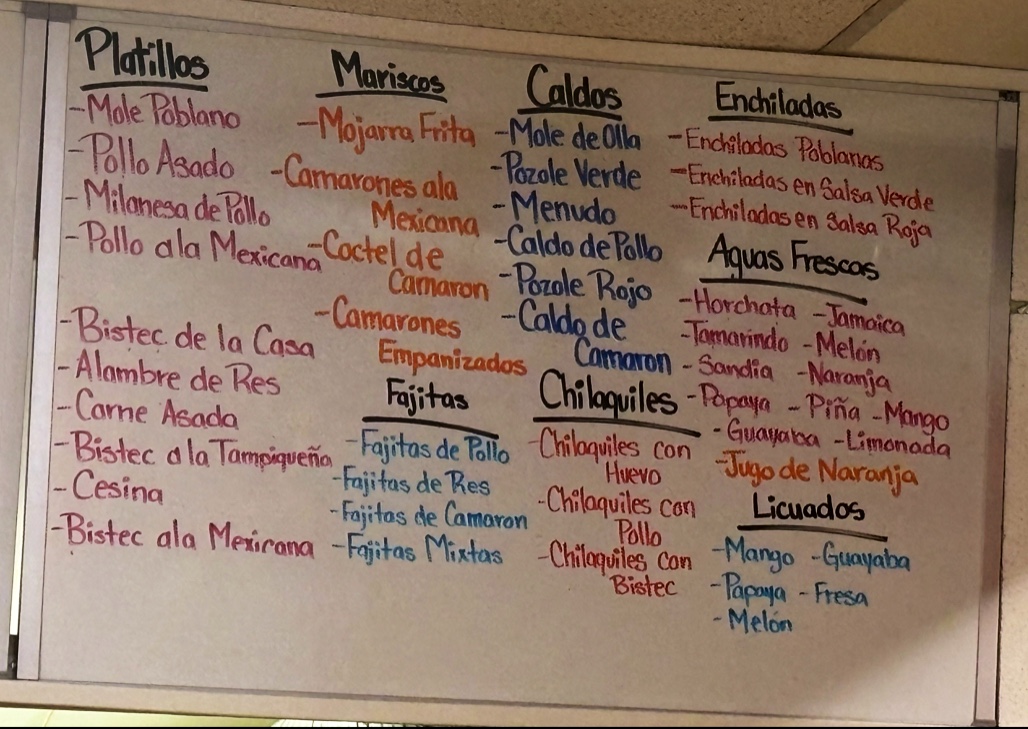 Platillos
-Mole Poblano
-Pollo Asado
-Milanesa de Pollo
-Pollo ala Mexicana
-Bistec de la Casa
-Alambre de Res
-Carne Asada
-Bistec a la Tampiqueña
-Cesina
-Bistec ala Mexicana
Mariscos
-Mojarra Frita
-Camarones ala
Mexicana
-Coctel de
Camaron
-Camarones
Empanizados
Fajitas
-Fajitas de Pollo
-Fajitas de Res
-Fajitas de Camaron
-Fajitas Mixtas
Caldos
-Mole de Olla
-Pozole Verde
-Menudo
-Caldo de Pollo
-Pozole Rojo
-Caldo de
Camaron
Chilaquiles
-Chilaquiles con
Huevo
-Chilaquiles con
Pollo
-Chilaquiles con
Bistec
Enchiladas
-Enchiladas Poblanas
-Enchiladas en Salsa Verde
-Enchiladas en Salsa Roja
Aguas Frescas
-Horchata -Jamaica
-Tamarindo -Melón
-Sandia -Naranja
-Papaya -Piña -Mango
-Guayaba -Limonada
-Jugo de Naranja
Licuados
-Mango -Guayaba
-Papaya -Fresa
-Melón